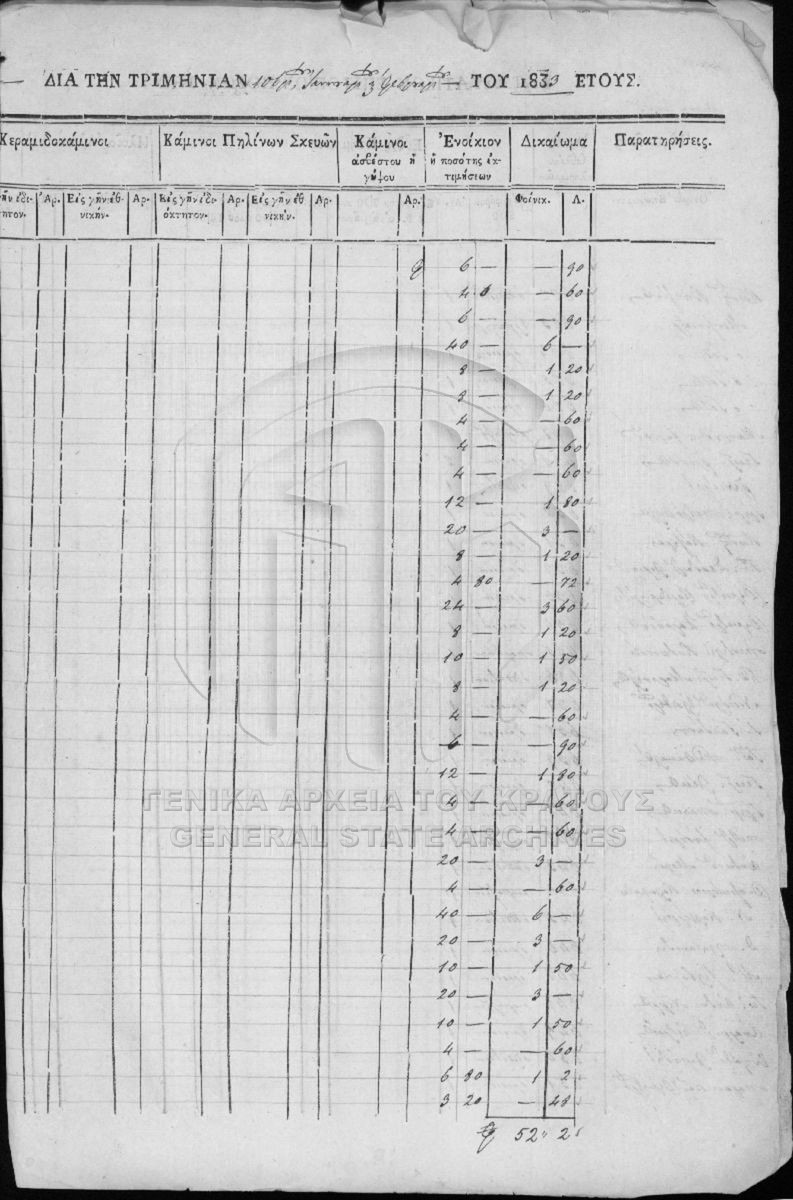 — ΔΙΑ ΤΗΝ ΤΡΙΜΗΝΙΑΝ 10βρ. — ΤΟΥ 1833 ΕΤΟΥΣ.
Κεραμιδοκάμινοι Κάμινοι Πηλίνων Σκευῶν Κάμινοι ἀσβέστου ἢ γύψου Ἐνοίκιον ἢ ποσότης ἐκτιμήσεων Δικαίωμα Παρατηρήσεις.
γῆν ἰδιόκτητον. Ἀρ. Εἰς γῆν ἐθνικήν. Αρ. Εἰς γῆν ἰδιόκτητον. Αρ. Εἰς γῆν ἐθνικήν. Αρ. Αρ. Φοίνικ. Λ.
6 — — 90
4 0 — 60
6 — — 90
40 — 6 —
8 — 1 20
8 — 1 20
4 — — 60
4 — — 60
4 — — 60
12 — 1 80
20 — 3 —
8 — 1 20
4 80 — 72
24 — 3 60
8 — 1 20
10 — 1 50
8 — 1 20
4 — — 60
6 — — 90
12 — 1 80
4 — — 60
4 — — 60
20 — 3 —
4 — — 60
40 — 6 —
20 — 3 —
10 — 1 50
20 — 3 —
10 — 1 50
4 — — 60
6 80 1 2
3 20 — 48
52 2
ΓΕΝΙΚΑ ΑΡΧΕΙΑ ΤΟΥ ΚΡΑΤΟΥΣ
GENERAL STATE ARCHIVES